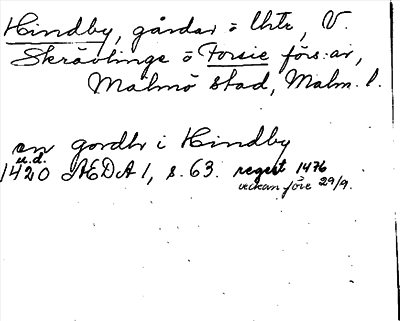 Hindby, gårdar o Uhte, V.
Skrävlinge o Fosie förs:ar,
Malmö stad, Malm. l.
en gordh i Hindby
u.d.
1420 ÆDA 1, s. 63. regest 1476
veckan före 29/9.